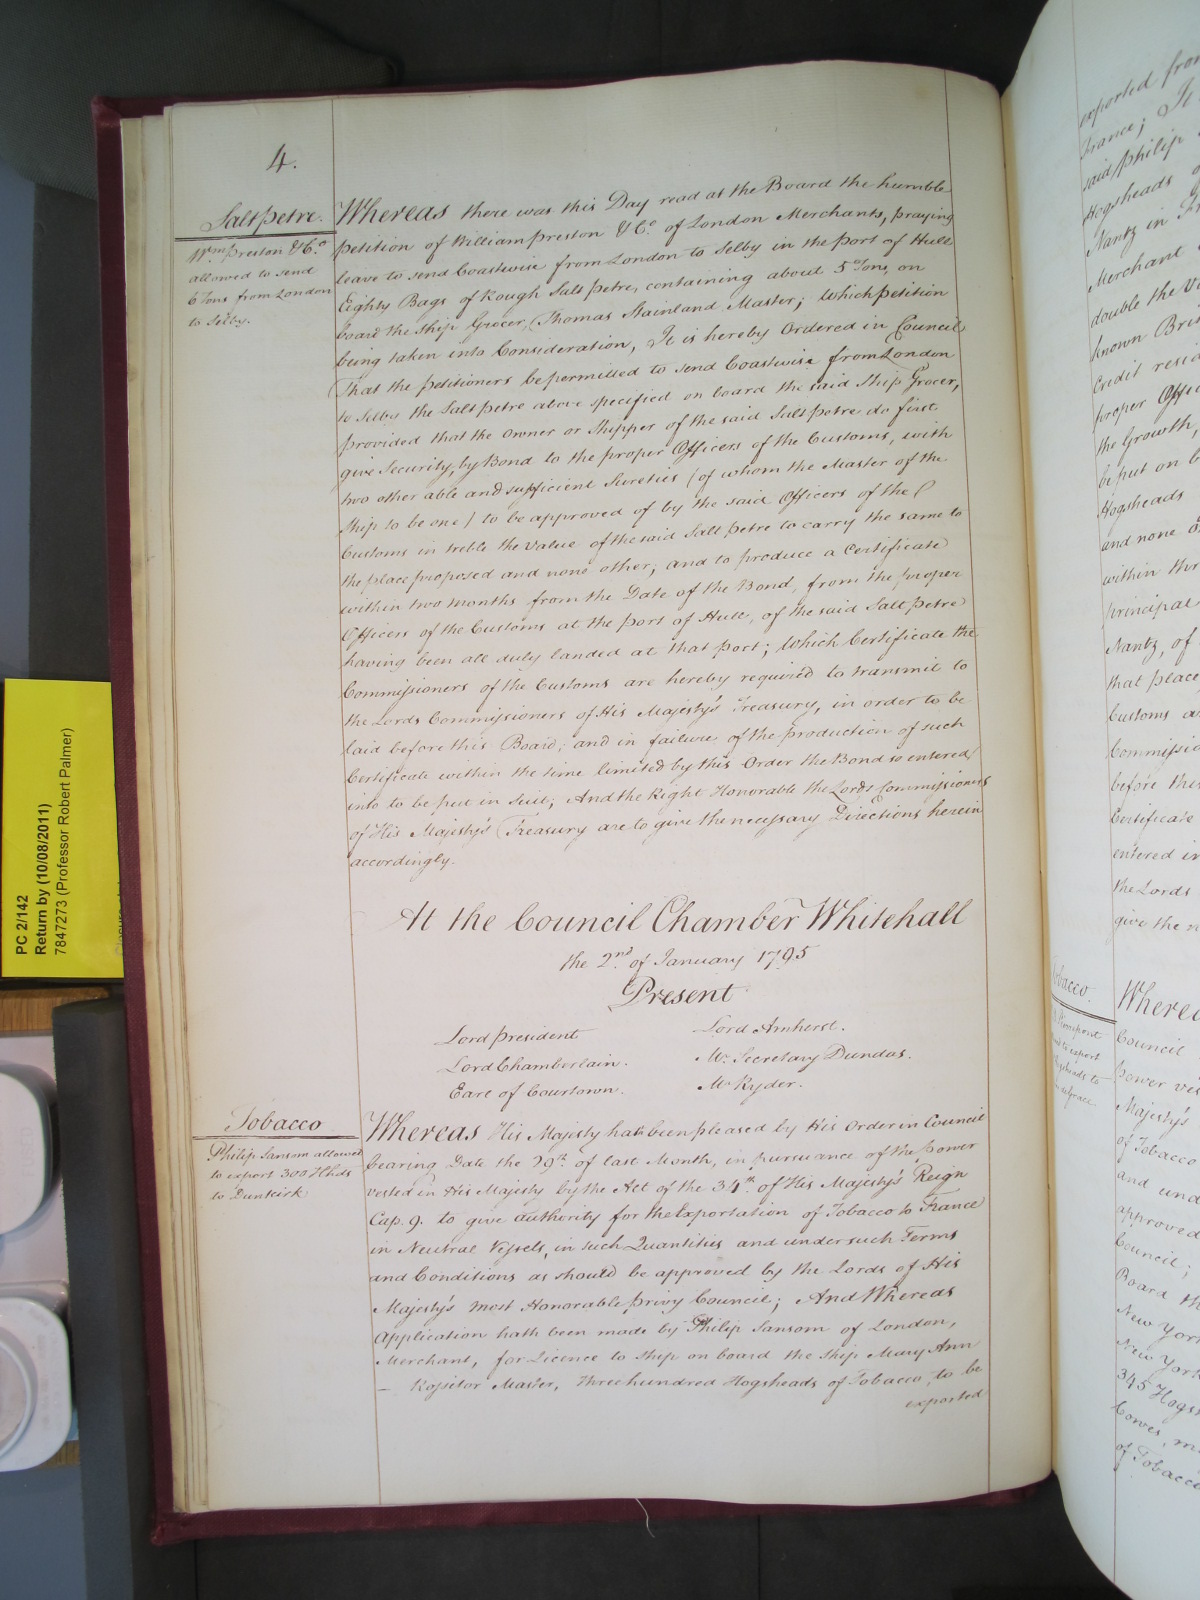 4.
Saltpetre.
Wm. Preston & Co.
allowed to send
6 Tons from London
to Selby.
Whereas there was this Day read at the Board the humble
Petition of William Preston & Co. of London Merchants, praying
leave to send Coastwise from London to Selby in the Port of Hull
Eighty Bags of Rough Salt petre, containing about 5 Tons, on
board the Ship Grocer, Thomas Stainland Master; Which Petition
being taken into Consideration, It is hereby Ordered in Council
That the Petitioners be permitted to send Coastwise from London
to Selby the Salt petre above specified on board the said Ship Grocer,
provided that the Owner or Shipper of the said Salt petre do first
give Security, by Bond to the proper Officers of the Customs, with
two other able and sufficient Sureties (of whom the Master of the
Ship to be one) to be approved of by the said Officers of the
Customs in treble the Value of the said Salt petre to carry the same to
the place proposed and none other; and to produce a Certificate
within two Months from the Date of the Bond, from the proper
Officers of the Customs at the Port of Hull, of the said Salt petre
having been all duly landed at that Port; Which Certificate the
Commissioners of the Customs are hereby required to transmit to
the Lords Commissioners of His Majesty's Treasury, in order to be
laid before this Board; and in failure of the production of such
Certificate within the time limited by this Order the Bond so entered
into to be put in Suit; And the Right Honorable the Lords Commissioners
of His Majesty's Treasury are to give the necessary Directions herein
accordingly.
At the Council Chamber Whitehall
the 2nd. of January 1795
Present
Lord President
Lord Amherst.
Lord Chamberlain.
Mr. Secretary Dundas.
Earl of Courtown.
Mr. Ryder.
Tobacco
Philip Sansom allowed
to export 300 Hhds
to Dunkirk.
Whereas His Majesty hath been pleased by His Order in Council
bearing Date the 29th. of last Month, in pursuance of the power
vested in His Majesty by the Act of the 34th. of His Majesty's Reign
Cap. 9. to give authority for the Exportation of Tobacco to France
in Neutral Vessels, in such Quantities and under such Terms
and Conditions as should be approved by the Lords of His
Majesty's most Honorable Privy Council; And Whereas
Application hath been made by Philip Sansom of London,
Merchant, for Licence to Ship on board the Ship Mary Ann
— Rossiter Master, Three hundred Hogsheads of Tobacco, to be
exported
PC 2/142
Return by (10/08/2011)
7847273 (Professor Robert Palmer)
exported from
France; It
said Philip
Hogsheads
Nantz in
Merchant
double the
known
Credit
proper
the Growth,
be put on
Hogsheads
and none
within
principal
Nantz, of
that place
Customs
before
Certificate
entered in
the Lords
give the
Tobacco.
Whereas
Council
power
Majesty's
of Tobacco
and
approved
Council;
Board
New York
New York
345
Cowes,
of Tobacco